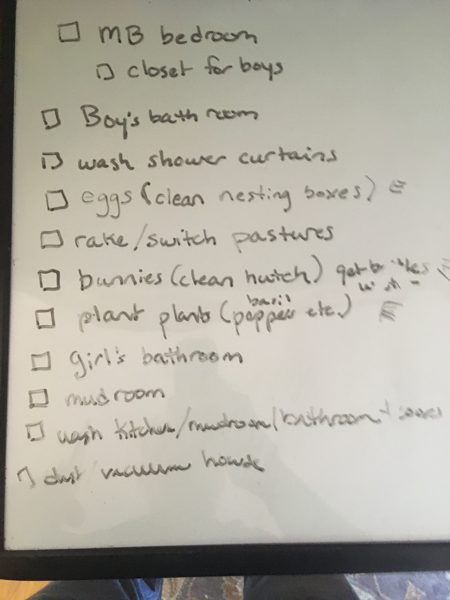 MB bedroom
closet for boys
Boy's bathroom
wash shower curtains
eggs (clean nesting boxes) E
rake/switch pastures
bunnies (clean hutch) get
basil
plant plants (peppers etc.) E
girl's bathroom
mudroom
wash kitchen/mudroom/bathroom
dust vacuum house